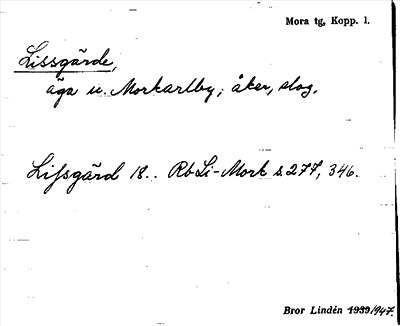 Mora tg, Kopp. l.
Lissgärde,
äga u. Morkarlby; åker, slog.
Lifsgärd 18.. Rb Li-Mork s. 277, 346.
Bror Lindén 1939/1947.